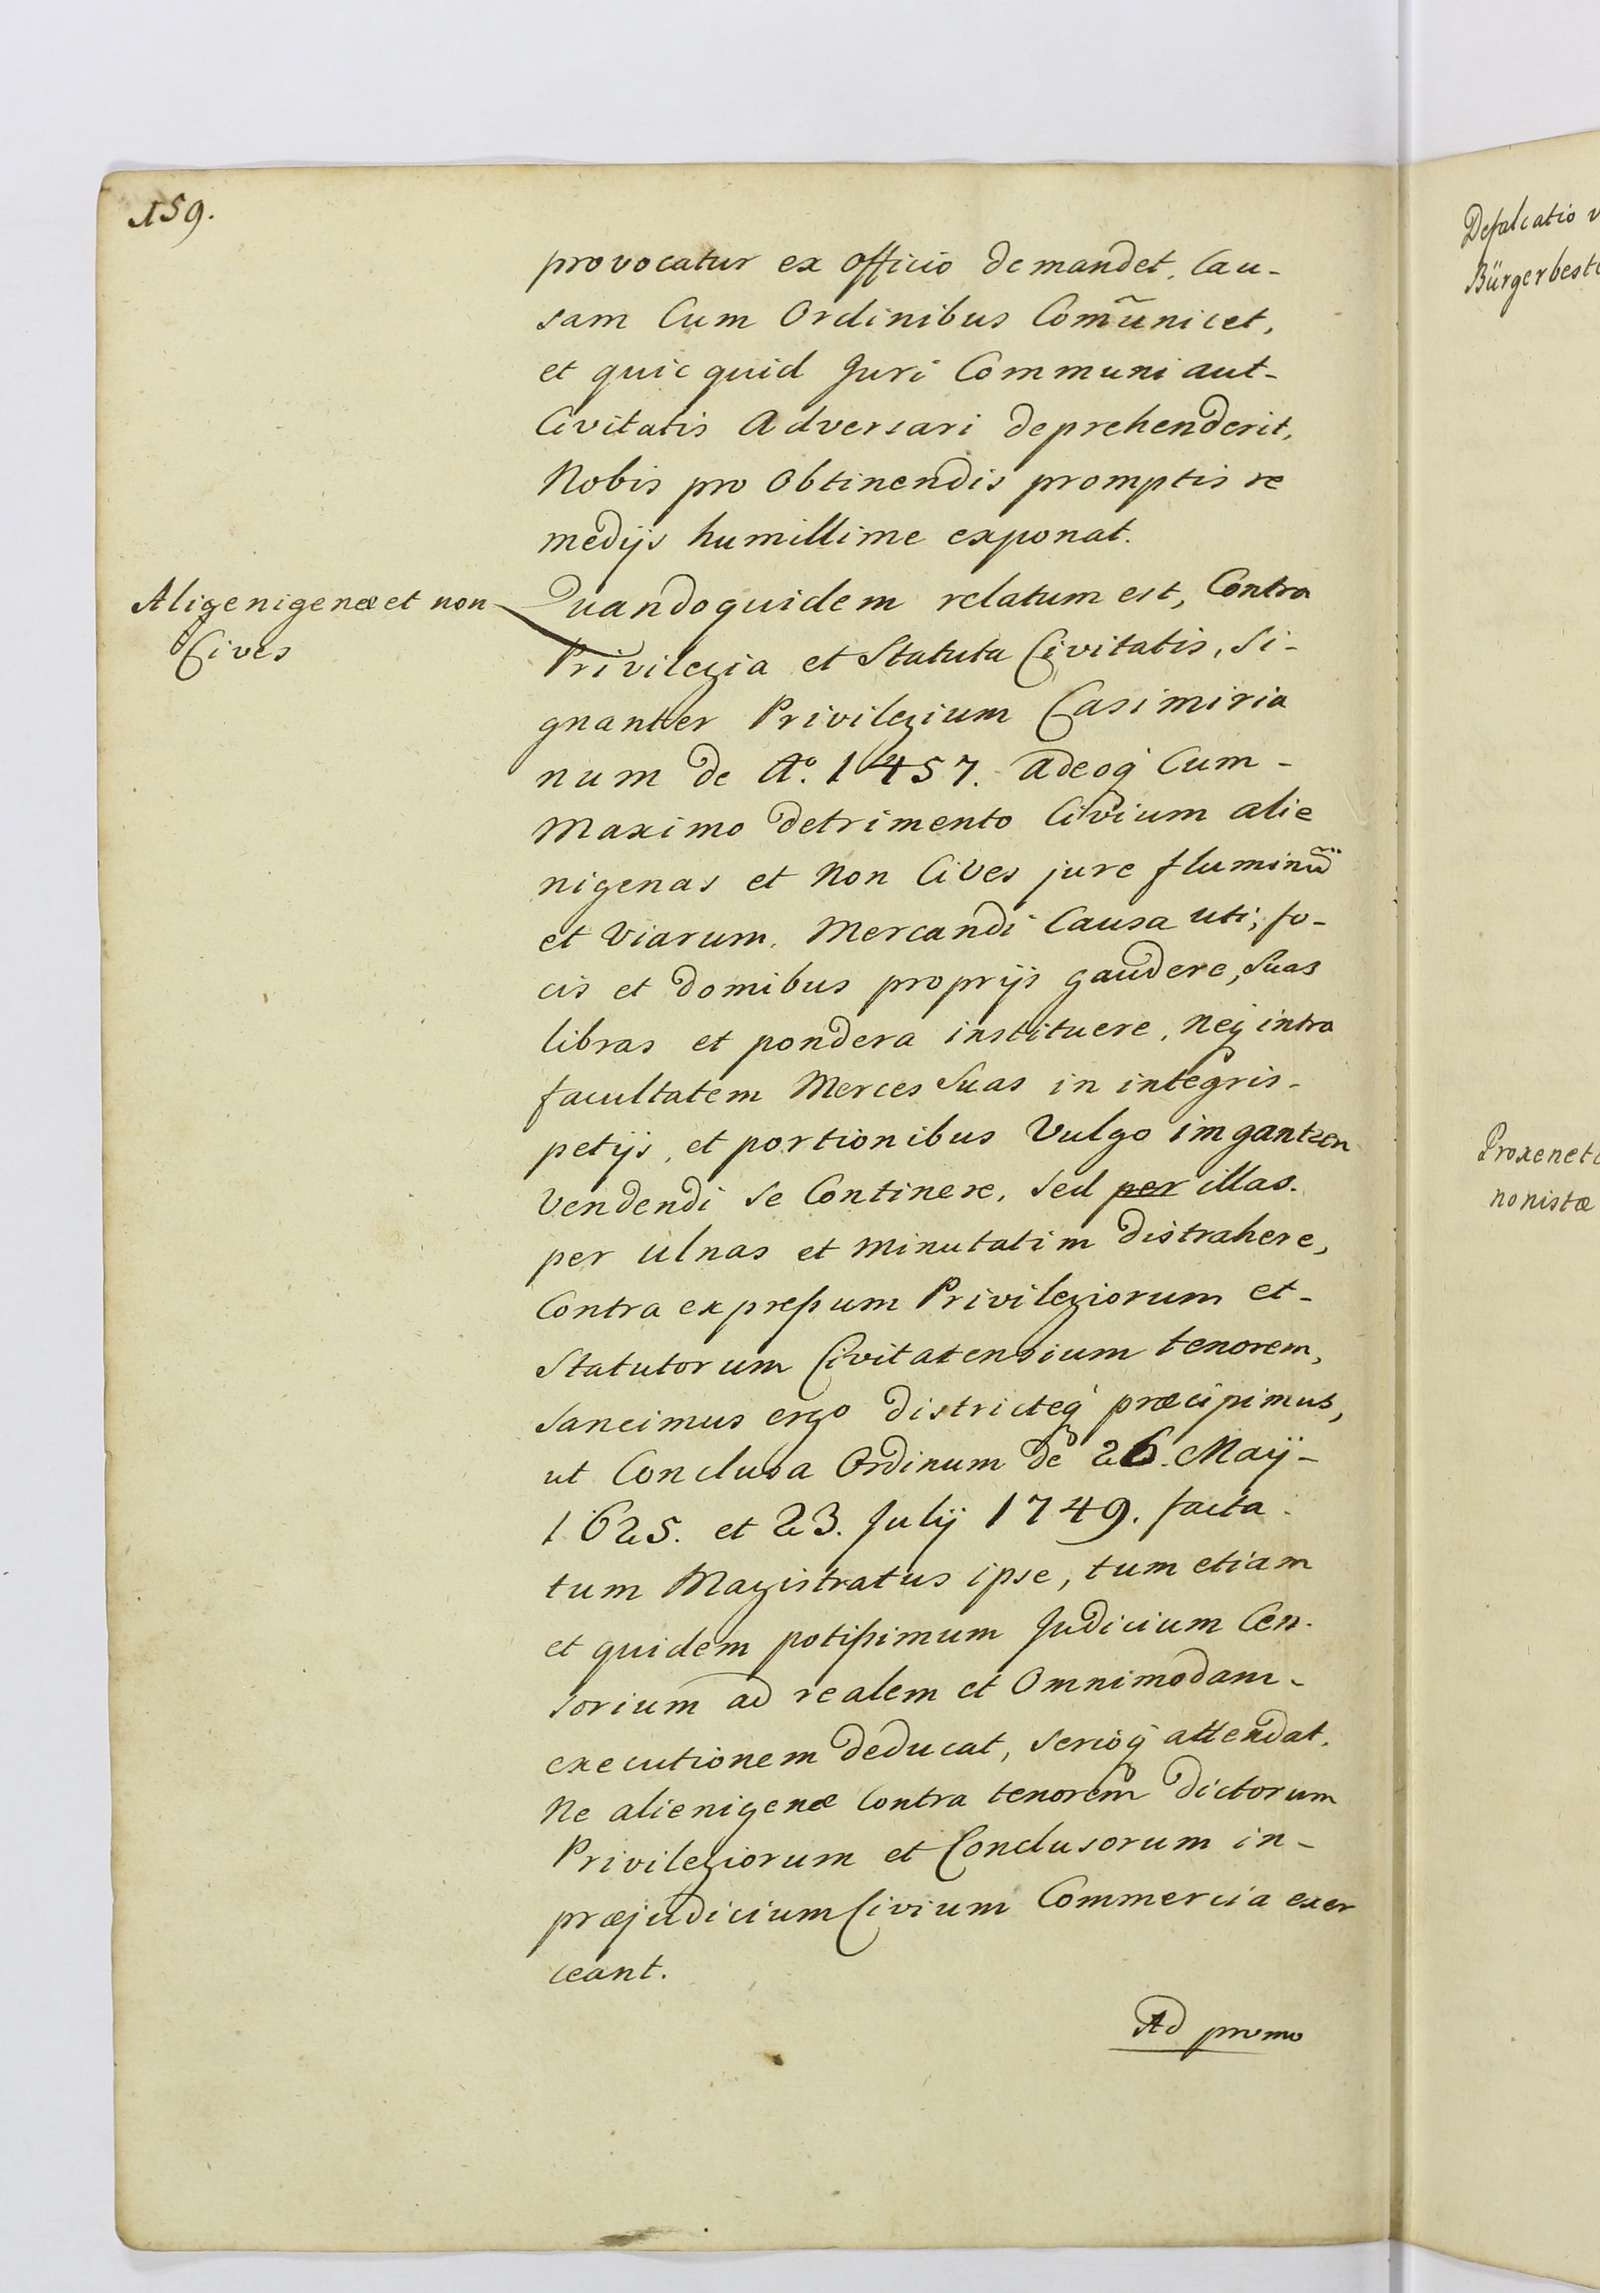 159.
provocatur ex officio demandet, Cau-
sam Cum Ordinibus Com̃unicet,
et quic quid Juri Communi aut-
Civitatis Adversari deprehenderit,
Nobis pro Obtinendis promptis re
medijs humillime exponat.
Aligenigenæ et non
Cives
Quandoquidem relatum est, Contra
Privilegia et Statuta Civitatis, Si-
gnanter Privilegium Casimiria
num de Aº. 1457. adeoq́ Cum-
Maximo detrimento Civium alie
nigenas et Non Cives jure fluminũ
et Viarum, Mercandi Causa uti, fo-
cis et domibus proprijs gaudere, Suas
libras et pondera instituere, Neq intra
facultatem Merces Suas in integris-
petijs, et portionibus Vulgo im gantzen
Vendendi se Continere, sed per illas.
per ulnas et minutatim distrahere,
Contra expreßum Privilegiorum et-
Statutorum Civitatensium tenorem,
Sancimus ergo districteq́ præcipimus,
ut Conclusa Ordinum de 26. Maÿ-
1625. et 23. Julÿ 1749. facta.
tum Magistratus ipse, tum etiam
et quidem potißimum Judicium Cen-
sorium ad realem et Omnimodam-
executionem deducat, serioq́ attendat.
Ne alienigenæ Contra tenorem dictorum
Privilegiorum et Conclusorum in-
præjudicium Civium Commercia exer
ceant.
Ad promo
Defalcatio
Bürgerbest
Proxenet
nonistæ